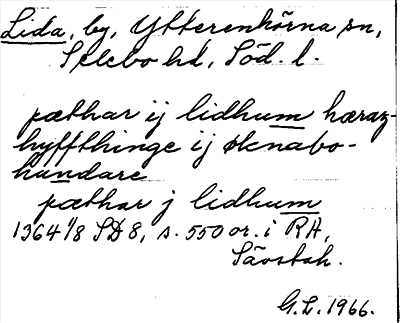 Lida, by, Ytterenhörna sn,
Selebo hd, Söd. l.
pæthar ij lidhum hæraz-
hyffthinge ij øknabo-
hundare
pæthar j lidhum
1364 1/8 SD 8, s. 550 or. i RA,
Sävstah.
G.L. 1966.